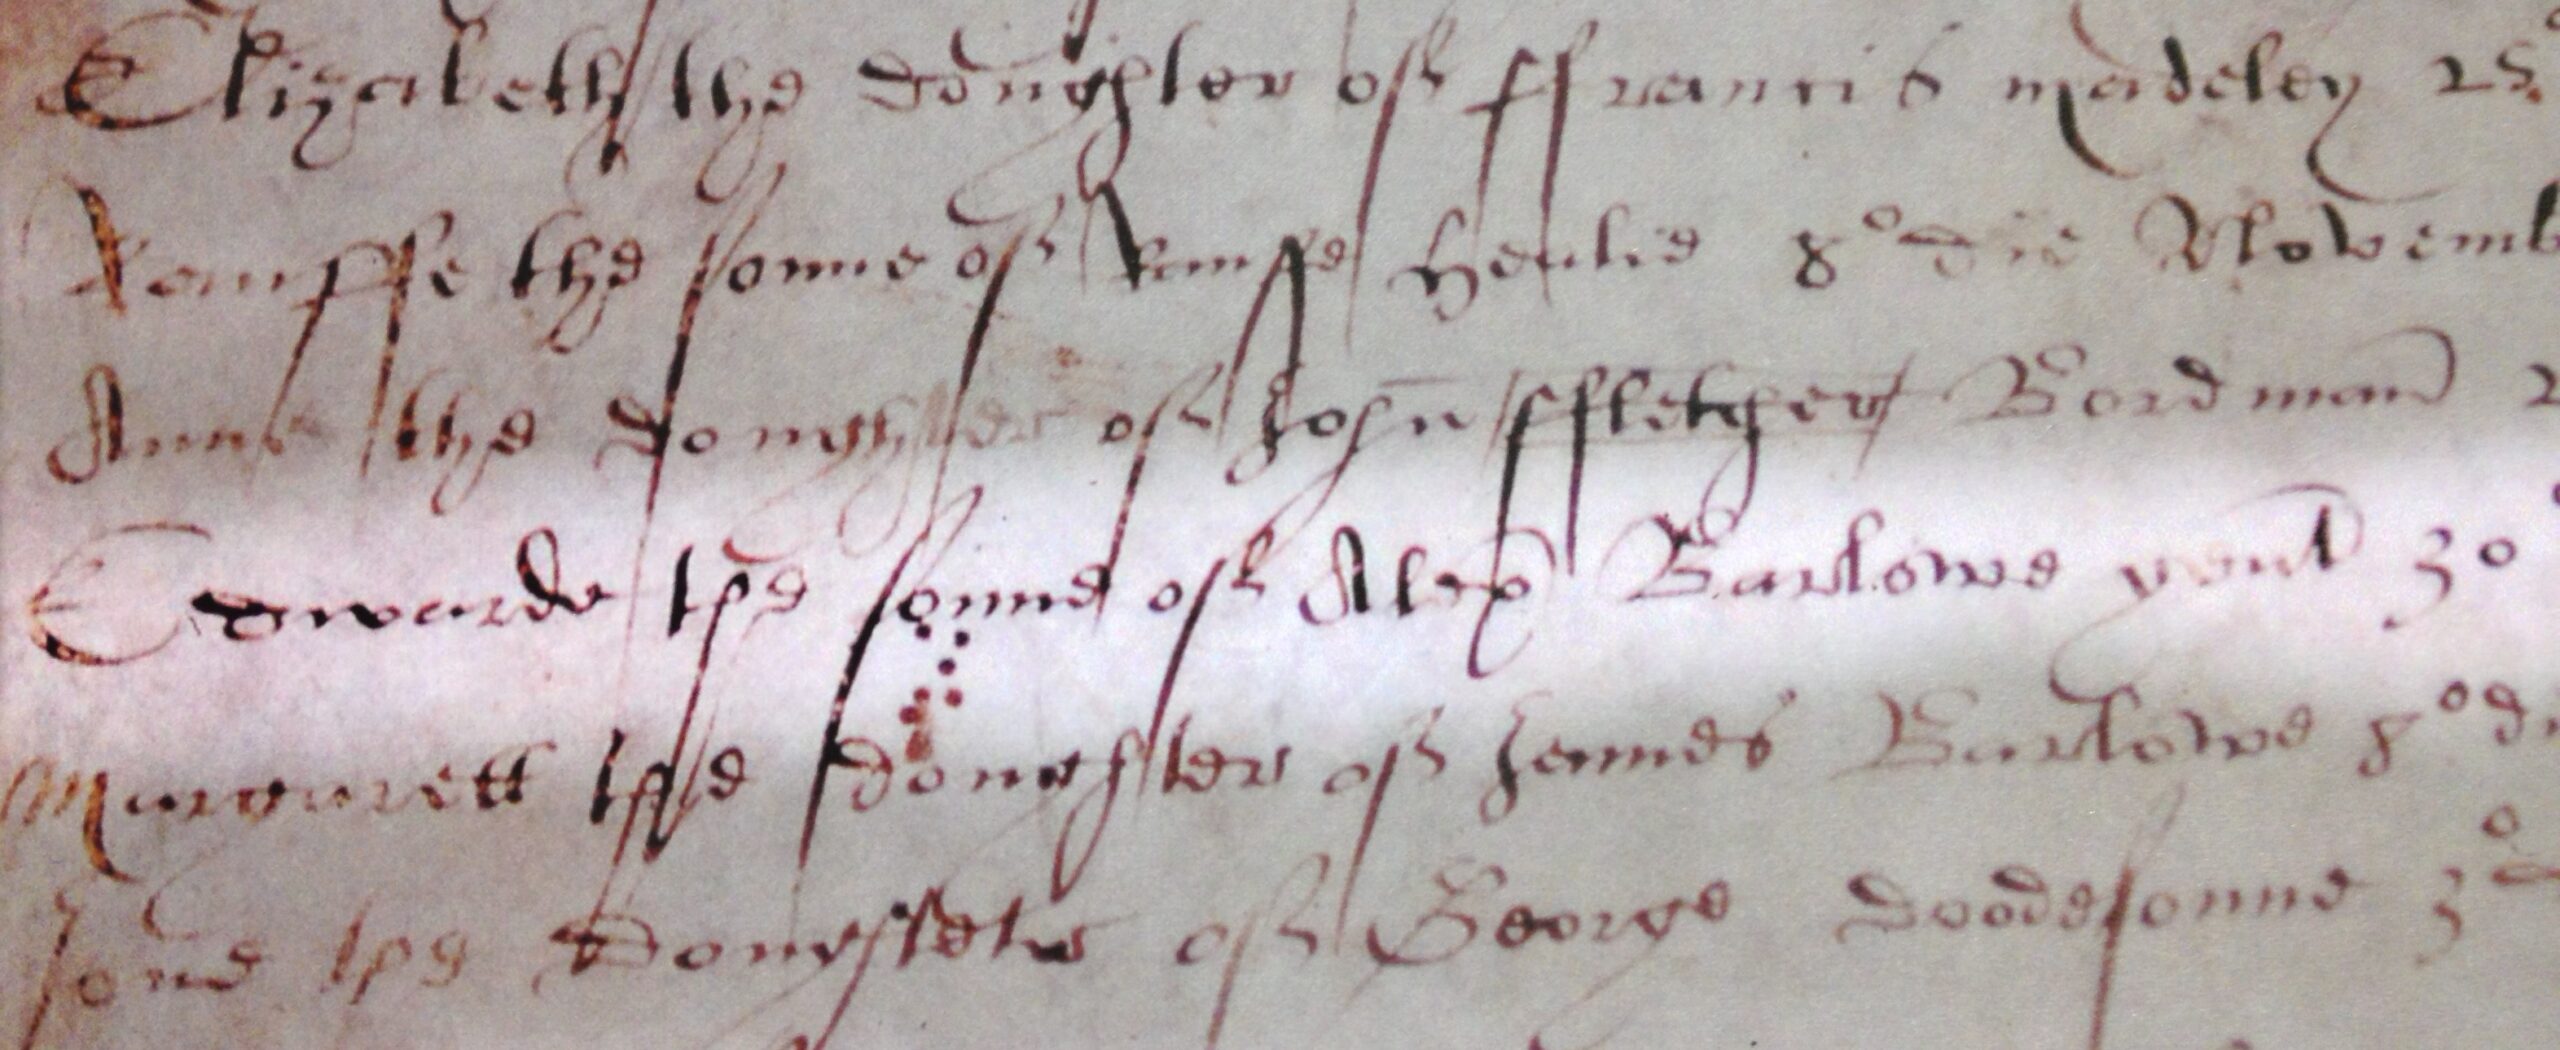 Elizabeth the doughter of ffrancis madeley 25
Rauffe the sonne of Rauffe Henlie 8° die Novemb
Anne the doughter of John ffletcher Bordman 2
Edwarde the sonne of Alex Barlowe gent 30
Margarett the doughter of James Barlowe 8° di
Jone the doughter of George doodesonne 3° d